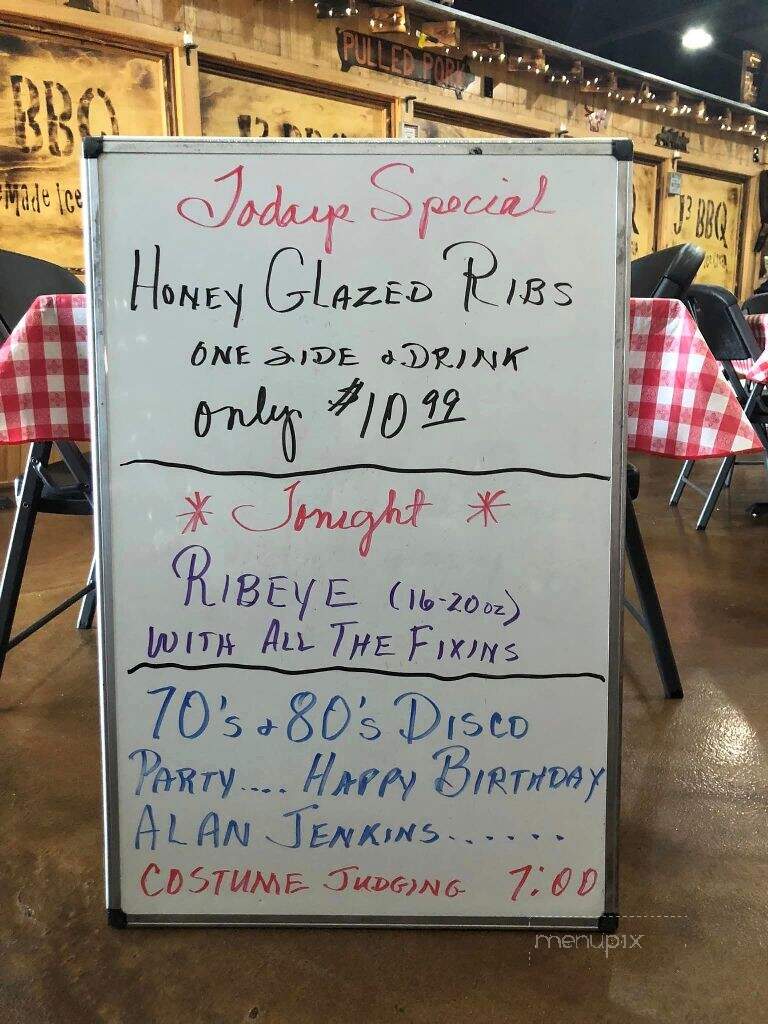 PULLED PORK
BBQ
Made Ice
J3 BBQ
J3 BBQ
Todays Special
HONEY GLAZED RIBS
ONE SIDE & DRINK
only $10 99
* Tonight *
RIBEYE (16-20 oz)
WITH ALL THE FIXINS
70's & 80's DISCO
PARTY.... HAPPY BIRTHDAY
ALAN JENKINS......
COSTUME JUDGING 7:00
menupix